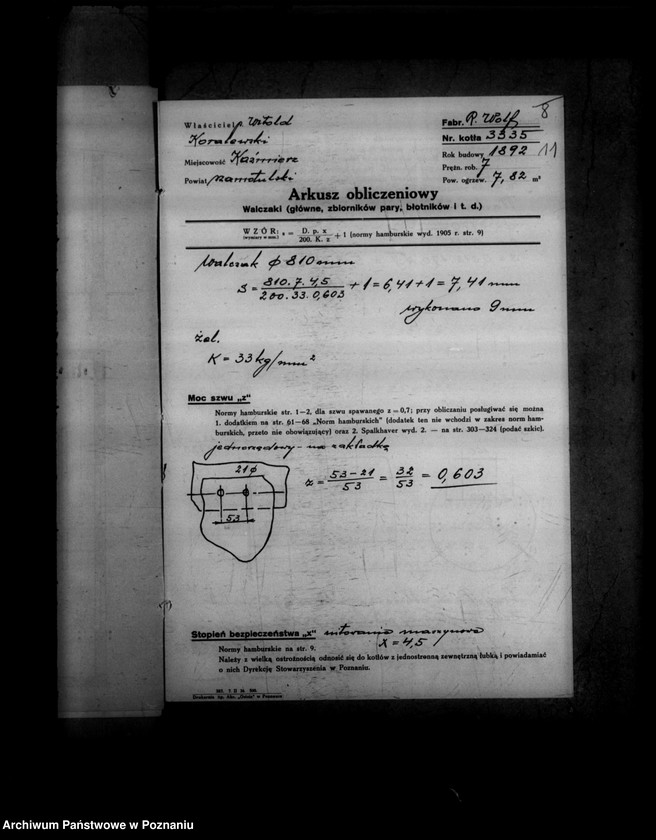 8
11
Właściciel p. Witold
Koralewski
Miejscowość Kaźmierz
Powiat szamotulski
Fabr. R. Wolf
Nr. kotła 3335
Rok budowy 1892
Prężn. rob. 7
Pow. ogrzew. 7,82 m²
Arkusz obliczeniowy
Walczaki (główne, zbiorników pary, błotników i t. d.)
WZÓR: (wymiary w mm.) s = D. p. x / 200. K. z + 1 (normy hamburskie wyd. 1905 r. str. 9)
Walczak ϕ 810 mm
S = 810. 7. 4,5 / 200. 33. 0,603 + 1 = 6,41 + 1 = 7,41 mm
wykonano 9 mm
żel.
K = 33 kg/mm²
Moc szwu „z"
Normy hamburskie str. 1—2, dla szwu spawanego z = 0,7; przy obliczaniu posługiwać się można
1. dodatkiem na str. 61—68 „Norm hamburskich" (dodatek ten nie wchodzi w zakres norm ham-
burskich, przeto nie obowiązujący) oraz 2. Spalkhaver wyd. 2. — na str. 303—324 (podać szkic).
jednorzędowy - na zakładkę
21 ϕ
53
z = 53 - 21 / 53 = 32 / 53 = 0,603
Stopień bezpieczeństwa „x" nitowania maszynowe
X = 4,5
Normy hamburskie na str. 9.
Należy z wielką ostrożnością odnosić się do kotłów z jednostronną zewnętrzną łubką i powiadamiać
o nich Dyrekcję Stowarzyszenia w Poznaniu.
Archiwum Państwowe w Poznaniu